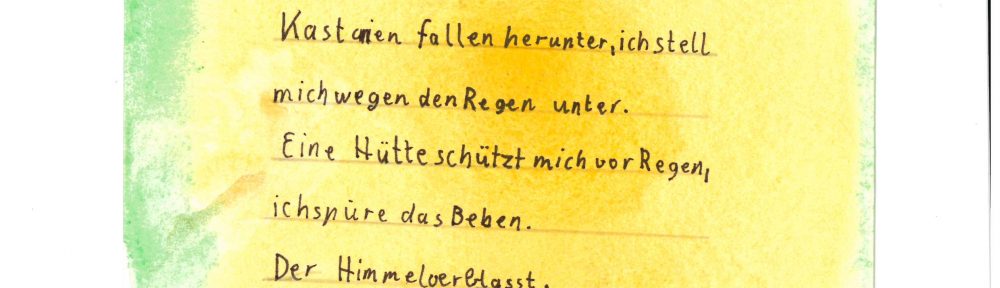 Kastanien fallen herunter, ich stell
mich wegen den Regen unter.
Eine Hütte schützt mich vor Regen,
ich spüre das Beben.
Der Himmel verblasst.